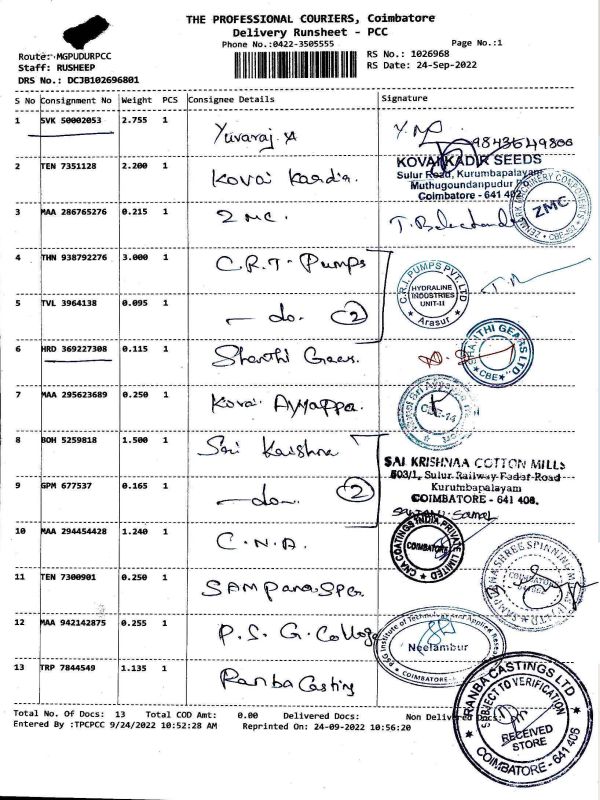 THE PROFESSIONAL COURIERS, Coimbatore
Delivery Runsheet - PCC
Phone No.:0422-3505555
Page No.:1
Route: MGPUDURPCC
Staff: RUSHEEP
DRS No.: DCJB102696801
RS No.: 1026968
RS Date: 24-Sep-2022
S No Consignment No Weight PCS Consignee Details Signature
1 SVK 50002053 2.755 1 Yuvaraj.A
9843549800
2 TEN 7351128 2.200 1 Kovai Kardia.
KOVAI KADIR SEEDS
Sulur Road, Kurumbapalayam
Muthugoundanpudur
Coimbatore - 641 402
3 MAA 286765276 0.215 1 ZMC.
ZMC
4 THN 938792276 3.000 1 C.R.I - Pumps
C.R.I PUMPS PVT. LTD
HYDRALINE
INDUSTRIES
UNIT-II
Arasur
5 TVL 3964138 0.095 1 - do - 2
6 HRD 369227308 0.115 1 Shanthi Gears.
SHANTHI GEARS LTD.
CBE
7 MAA 295623689 0.250 1 Kovai Ayyappa.
8 BOH 5259818 1.500 1 Sri Krishna
SAI KRISHNAA COTTON MILLS
503/1, Sulur Railway Feder Road
Kurumbapalayam
COIMBATORE - 641 406.
9 GPM 677537 0.165 1 - do - 2
10 MAA 294454428 1.240 1 C.N.A.
CNA COATINGS INDIA PRIVATE LIMITED
COIMBATORE
11 TEN 7300901 0.250 1 SAMPana.Spg.
12 MAA 942142875 0.255 1 P.S.G. College
PSG Institute of Technology and Applied Research
Neelambur
COIMBATORE
13 TRP 7844549 1.135 1 Ranba Casting
RANBA CASTINGS LTD
SUBJECT TO VERIFICATION
RECEIVED
STORE
COIMBATORE - 641 406
Total No. Of Docs: 13 Total COD Amt: 0.00 Delivered Docs: Non Delivered Docs:
Entered By :TPCPCC 9/24/2022 10:52:28 AM Reprinted On: 24-09-2022 10:56:20